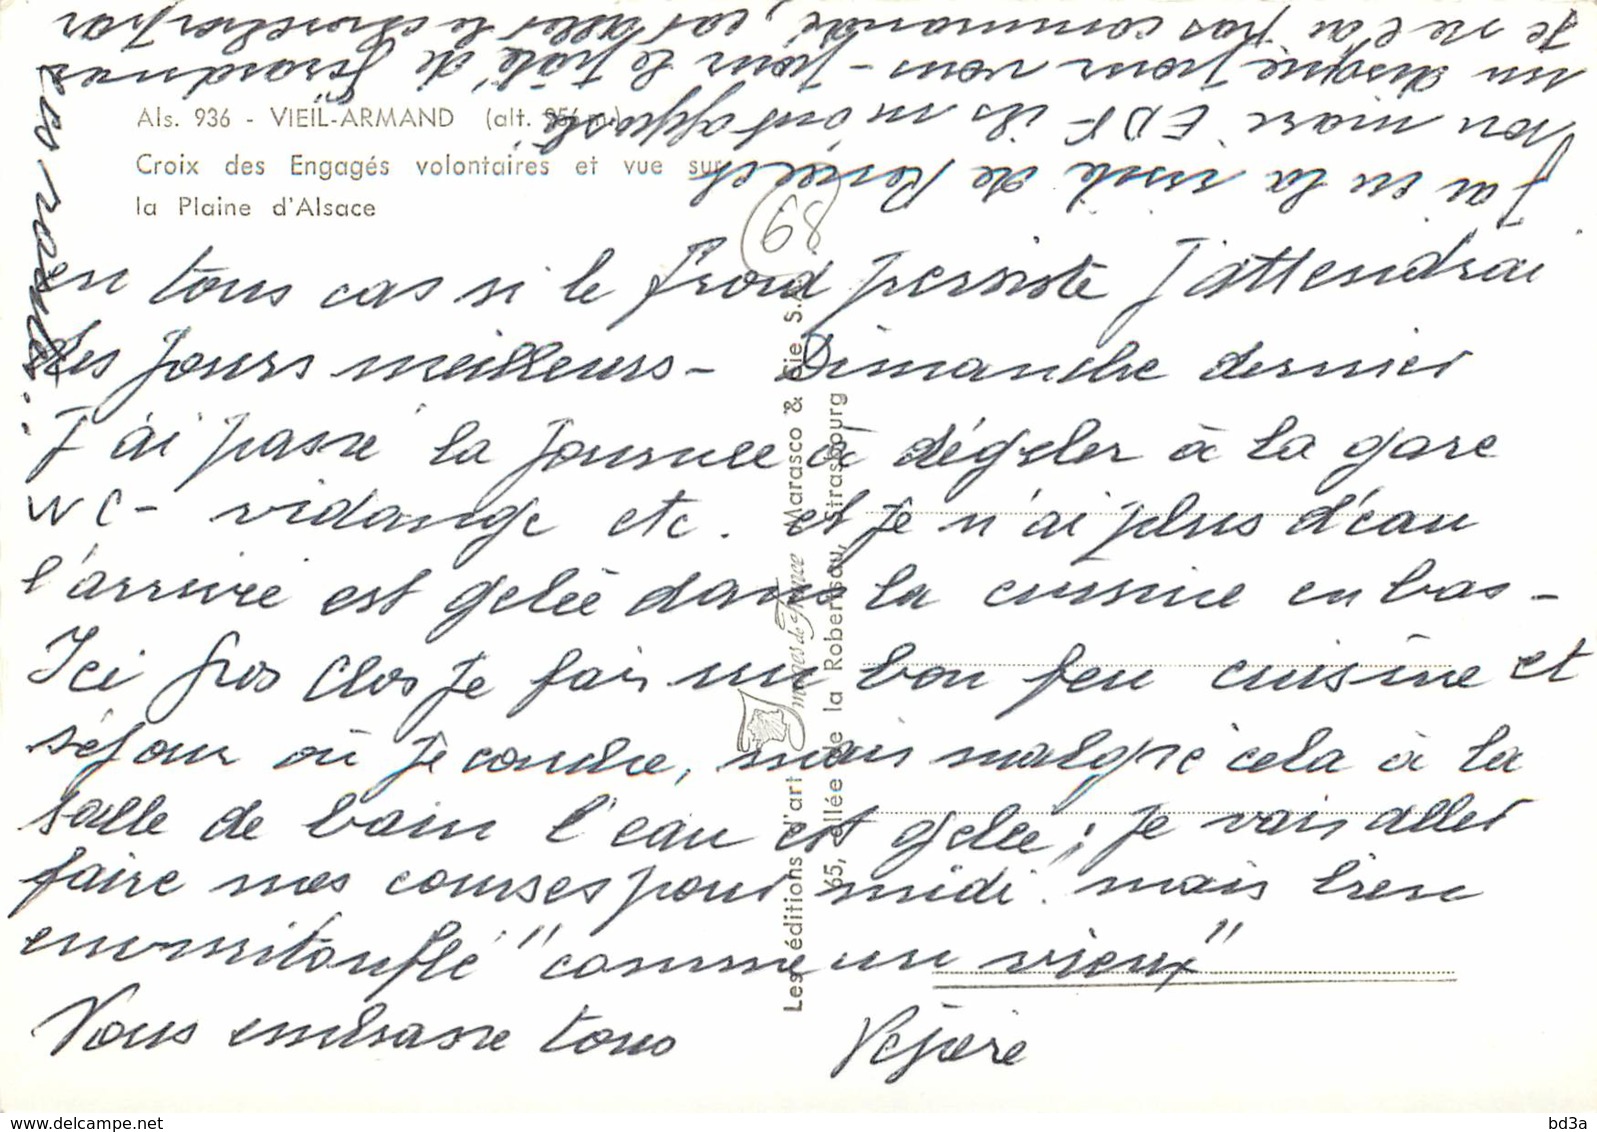 Als. 936 - VIEIL-ARMAND (alt. 956 m.)
Croix des Engagés volontaires et vue sur
la Plaine d'Alsace
en tous cas si le froid persiste J'attendrai
des Jours meilleurs - Dimanche dernier
J'ai passé la Journée à dégeler à la gare
WC - vidange etc. et Je n'ai plus d'eau
l'arrivée est gelée dans la cuisine en bas -
Ici gros Clos Je fais un bon feu cuisine et
séjour où Je couche, mais malgré cela à la
salle de bain l'eau est gelée; Je vais aller
faire mes courses pour midi. mais bien
emmitouflé "comme un vieux"
Vous embrasse tous Pépère
J'ai eu la visite de et
son mari EDF ils m'ont apporté
un disque pour vous - pour le pâté de
Je ne l'ai pas commandé, car aller le chercher par
ces routes...
89
Les éditions d'art Images de France Marasco & Cie S.A.
65, allée de la Robertsau, Strasbourg
delcampe.net
bd3a